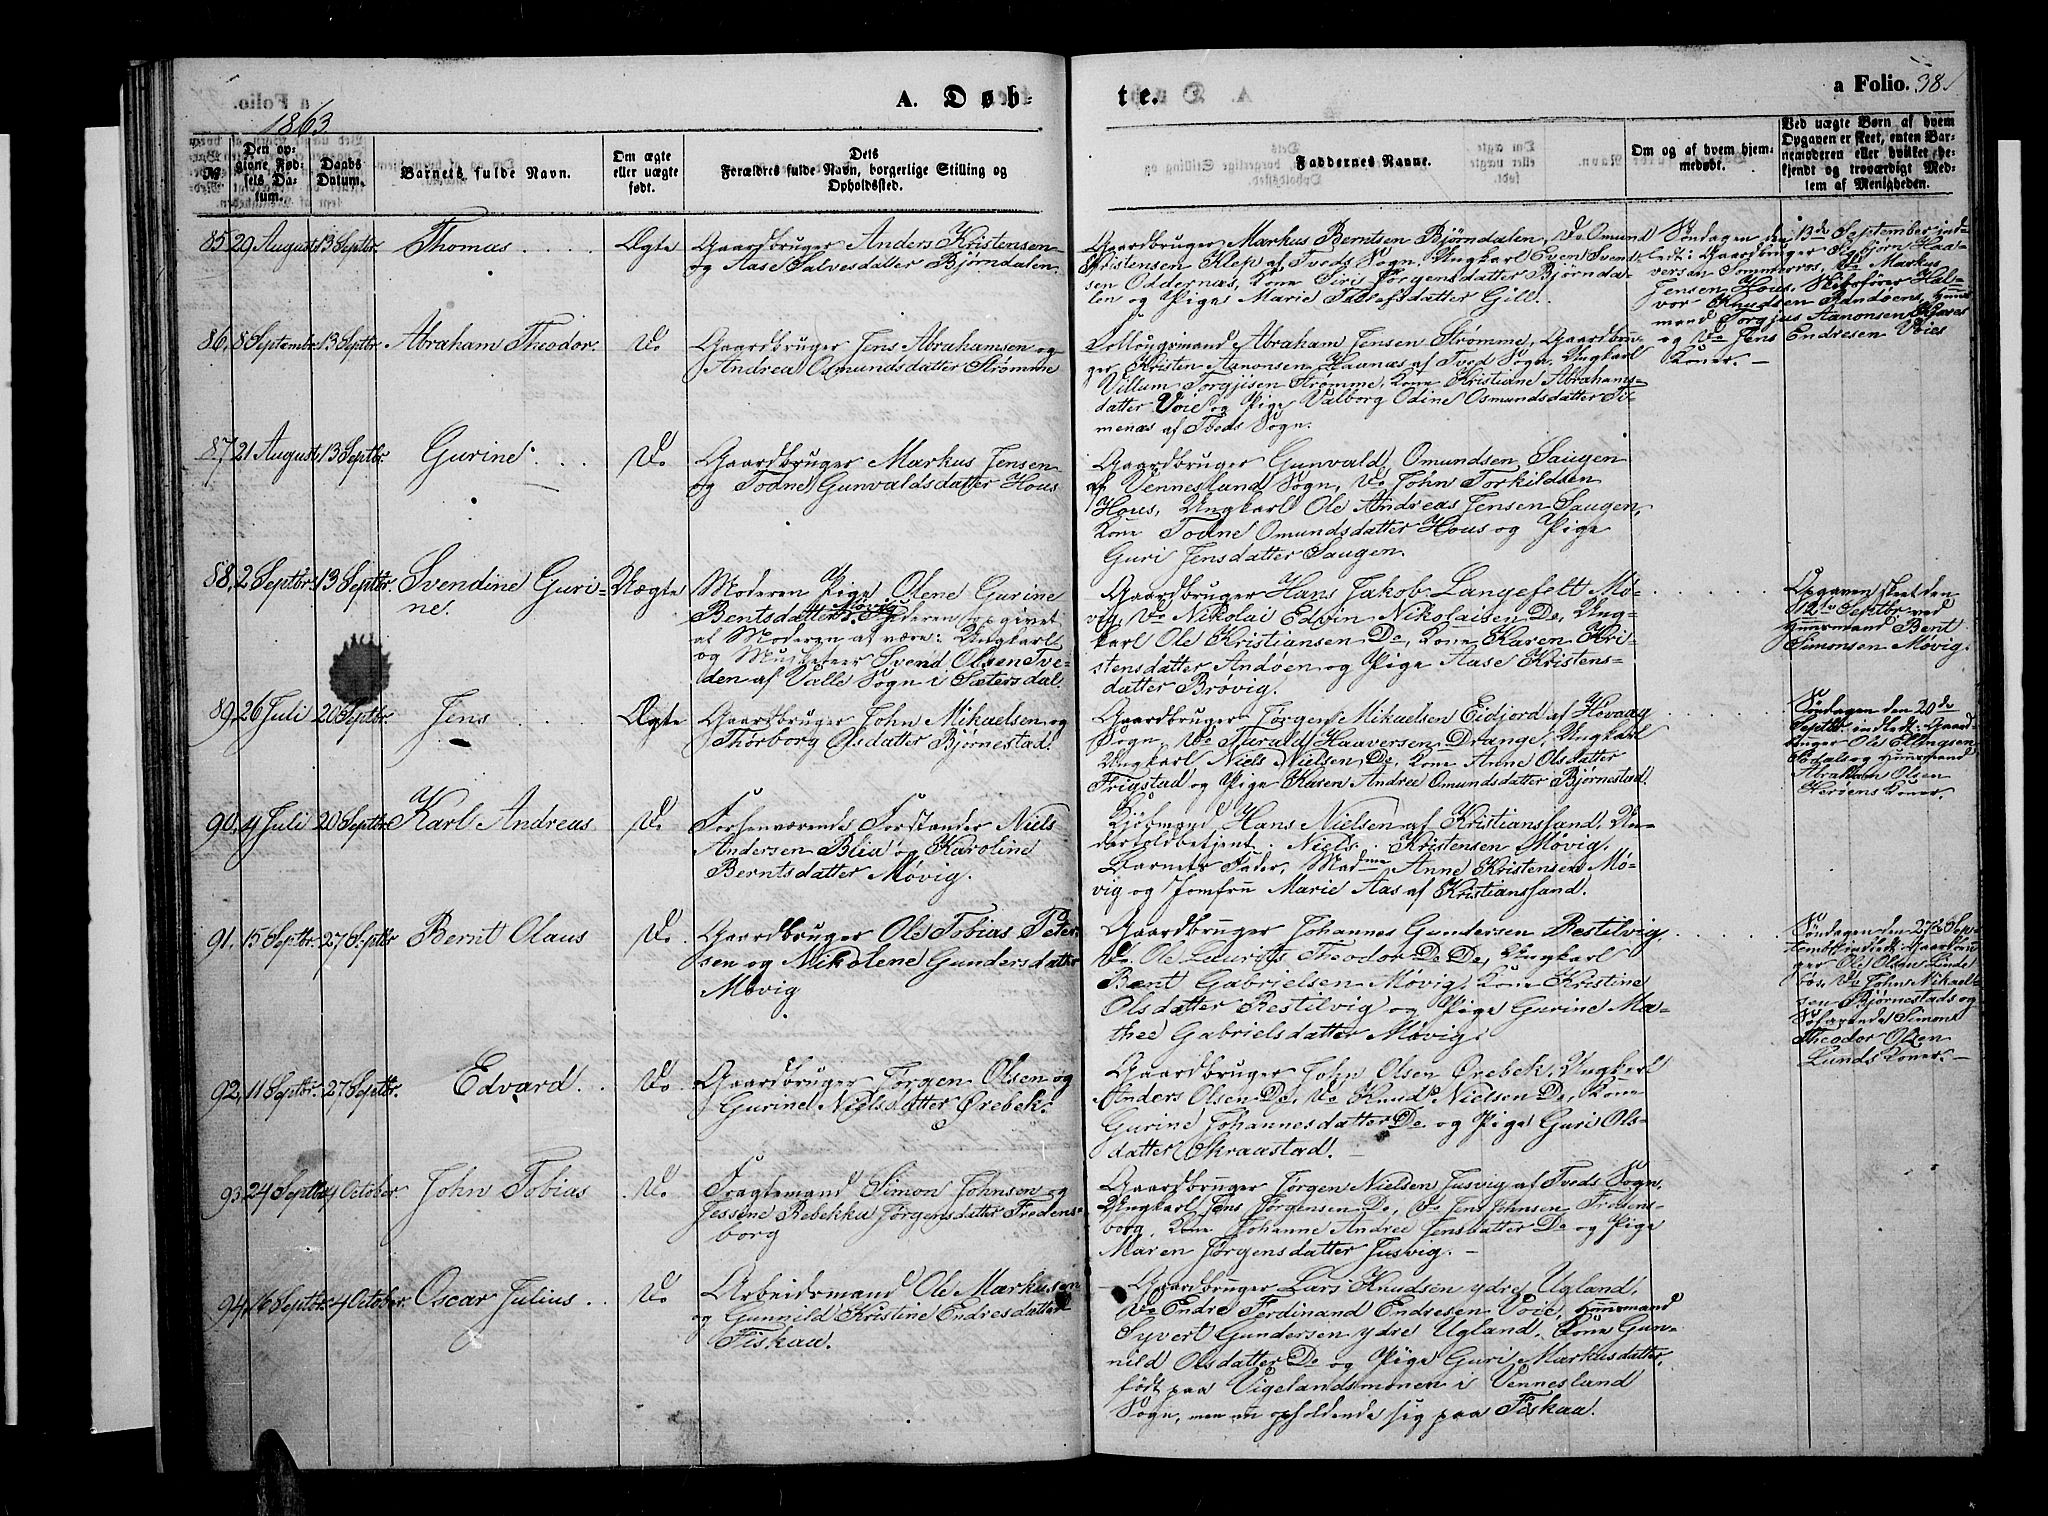 A. Døb-
te.
a Folio. 38.
1863
No.
Den op-
givne Fød-
sels Da-
tum.
Daabs
Datum.
Barnets fulde Navn.
Om ægte
eller uægte
født.
Dets
Forældres fulde Navn, borgerlige Stilling og
Opholdssted.
Faddernes Navne.
Om og af hvem hjem-
medøbt.
Ved uægte Børn af hvem
Opgaven er skeet, enten Bar-
nemoderen eller hvilket be-
kjendt og troværdigt Med-
lem af Menigheden.
85. 29 August 13 Septbr. Thomas Ægte
Gaardbruger Anders Kristensen
og Aase Salvesdatter Bjørndalen
Gaardbruger Markus Berntsen Bjørndalen, Do Omund
Kristensen Klep af Tveds Sogn, Ungkarl Even Svend-
sen Oddernæs, Kone Siri Jørgensdatter Bjørnda-
len og Pige Marie Tallefsdatter Gill.
Søndagen den 13de September ind-
ledt: Gaardbruger Asbjørn Haa-
versen Sommerros, Do Markus
Jensen Hous, Skibsfører Hal-
vor Knudsen Randøens, Huus-
mand Torgjus Aanonsen Kaases
og Do Jens Endresen Voies
Koner.
86. 8 Septembr. 13 Septbr. Abraham Theodor. Do
Gaardbruger Jens Abrahamsen og
Andrea Osmundsdatter Strømme
Kollougsmand Abraham Jensen Strømme, Gaardbru-
ger Kristen Aanonsen Haanæs af Tved Sogn, Ungkarl
Villum Torgjisen Strømme, Kone Kristiane Abrahams-
datter Voie og Pige Valborg Odine Osmundsdatter Ti-
menæs af Tveds Sogn.
87. 21 August 13 Septbr. Gurine Do
Gaardbruger Markus Jensen
og Todne Gunvaldsdatter Hous
Gaardbruger Gunvald Omundsen Saugen
af Vennesland Sogn, Do John Torkildsen
Hous, Ungkarl Ole Andreas Jensen Saugen,
Kone Todne Omundsdatter Hous og Pige
Guri Jensdatter Saugen.
88. 2 Septbr. 13 Septbr. Svendine Guri-
ne. Uægte
Moderen Pige Olene Gurine
Bentsdatter Møvig. Faderen opgivet
af Moderen at være: Ungkarl
og Musketeer Svend Olsen Tve-
den af Valle Sogn i Sætersdal.
Gaardbruger Hans Jakob Langefelt Mø-
vig, Do Nikolai Edvin Nikolaisen Do, Ung-
karl Ole Kristiansen Do, Kone Karen Kri-
stensdatter Andøen og Pige Aase Kristens-
datter Brøvig.
Opgaven skeet den
12te Septbr. ved
Huusmand Bent
Simonsen Møvig.
89. 26 Juli 20 Septbr. Jens Ægte
Gaardbruger John Mikaelsen og
Thorborg Olsdatter Bjørnestad.
Gaardbruger Jørgen Mikaelsen Eidjord af Høvaag
Sogn, Do Turald Haaversen Drange, Ungkarl
Ungkarl Niels Nielsen Do, Kone Anne Olsdatter
Frigstad og Pige Karen Andrea Omundsdatter Bjørnestad.
Søndagen den 20de
Septbr. indledt: Gaard-
bruger Ole Ellingsen
Aadals og Huusmand
Abraham Olsen
Kerøens Koner.
90. 4 Juli 20 Septbr. Karl Andreas Do
Forhenværende Forstander Niels
Andersen Blia og Karoline
Berntsdatter Møvig.
Kjøbmand Hans Nielsen af Kristianssand, Un-
dertoldbetjent Niels Kristensen Møvig,
Barnets Fader, Madme Anne Kristensen Mø-
vig og Jomfru Marie Aas af Kristianssand.
91. 15 Septbr. 27 Septbr Bernt Olaus Do
Gaardbruger Ole Tobias Peter-
sen og Nikolene Gundersdatter
Møvig
Gaardbruger Johannes Gundersen Restilvig,
Do Ole Laurits Theodor Do Do, Ungkarl
Bent Gabrielsen Møvig, Kone Kristine
Olsdatter Restilvig og Pige Gurine Ma-
thee Gabrielsdatter Møvig.
Søndagen den 27de Sep-
tembr. indledt: Gaardbru-
ger Ole Olsens Linde-
bø, Do John Mikael-
sen Bjørnestads og
Søfarende Simon
Theodor Olsen
Lunds Koner.
92. 11 Septbr. 27 Septbr. Edvard. Do
Gaardbruger Jørgen Olsen og
Gurine Nielsdatter Ørebek.
Gaardbruger John Olsen Ørebek, Ungkarl
Anders Olsen Do, Do Knud Nielsen Do, Kone
Gurine Johannesdatter Do og Pige Guri Ols-
datter Skraastad.
93. 24 Septbr. 4 October. John Tobias Do
Fragtemand Simon Johnsen og
Jessine Rebekka Jørgensdatter Fredens-
borg
Gaardbruger Jørgen Nielsen Jusvig af Tveds Sogn,
Ungkarl Jens Jørgensen Do, Do Jens Johnsen Fredens-
borg, Kone Johanne Andrea Jensdatter Do og Pige
Maren Jørgensdatter Jusvig.
94. 16 Septbr. 4 October. Oscar Julius. Do
Arbeidsmand Ole Markusen
og Gunnild Kristine Endresdatter
Fiskaa.
Gaardbruger Lars Knudsen ydre Ugland,
Do Endre Ferdinand Endresen Voie, Huusmand
Syvert Gundersen ydre Ugland, Kone Gun-
nild Olsdatter Do og Pige Guri Markusdatter,
født paa Vigelandsmonen i Vennesland
Sogn, men nu opholdende sig paa Fiskaa.